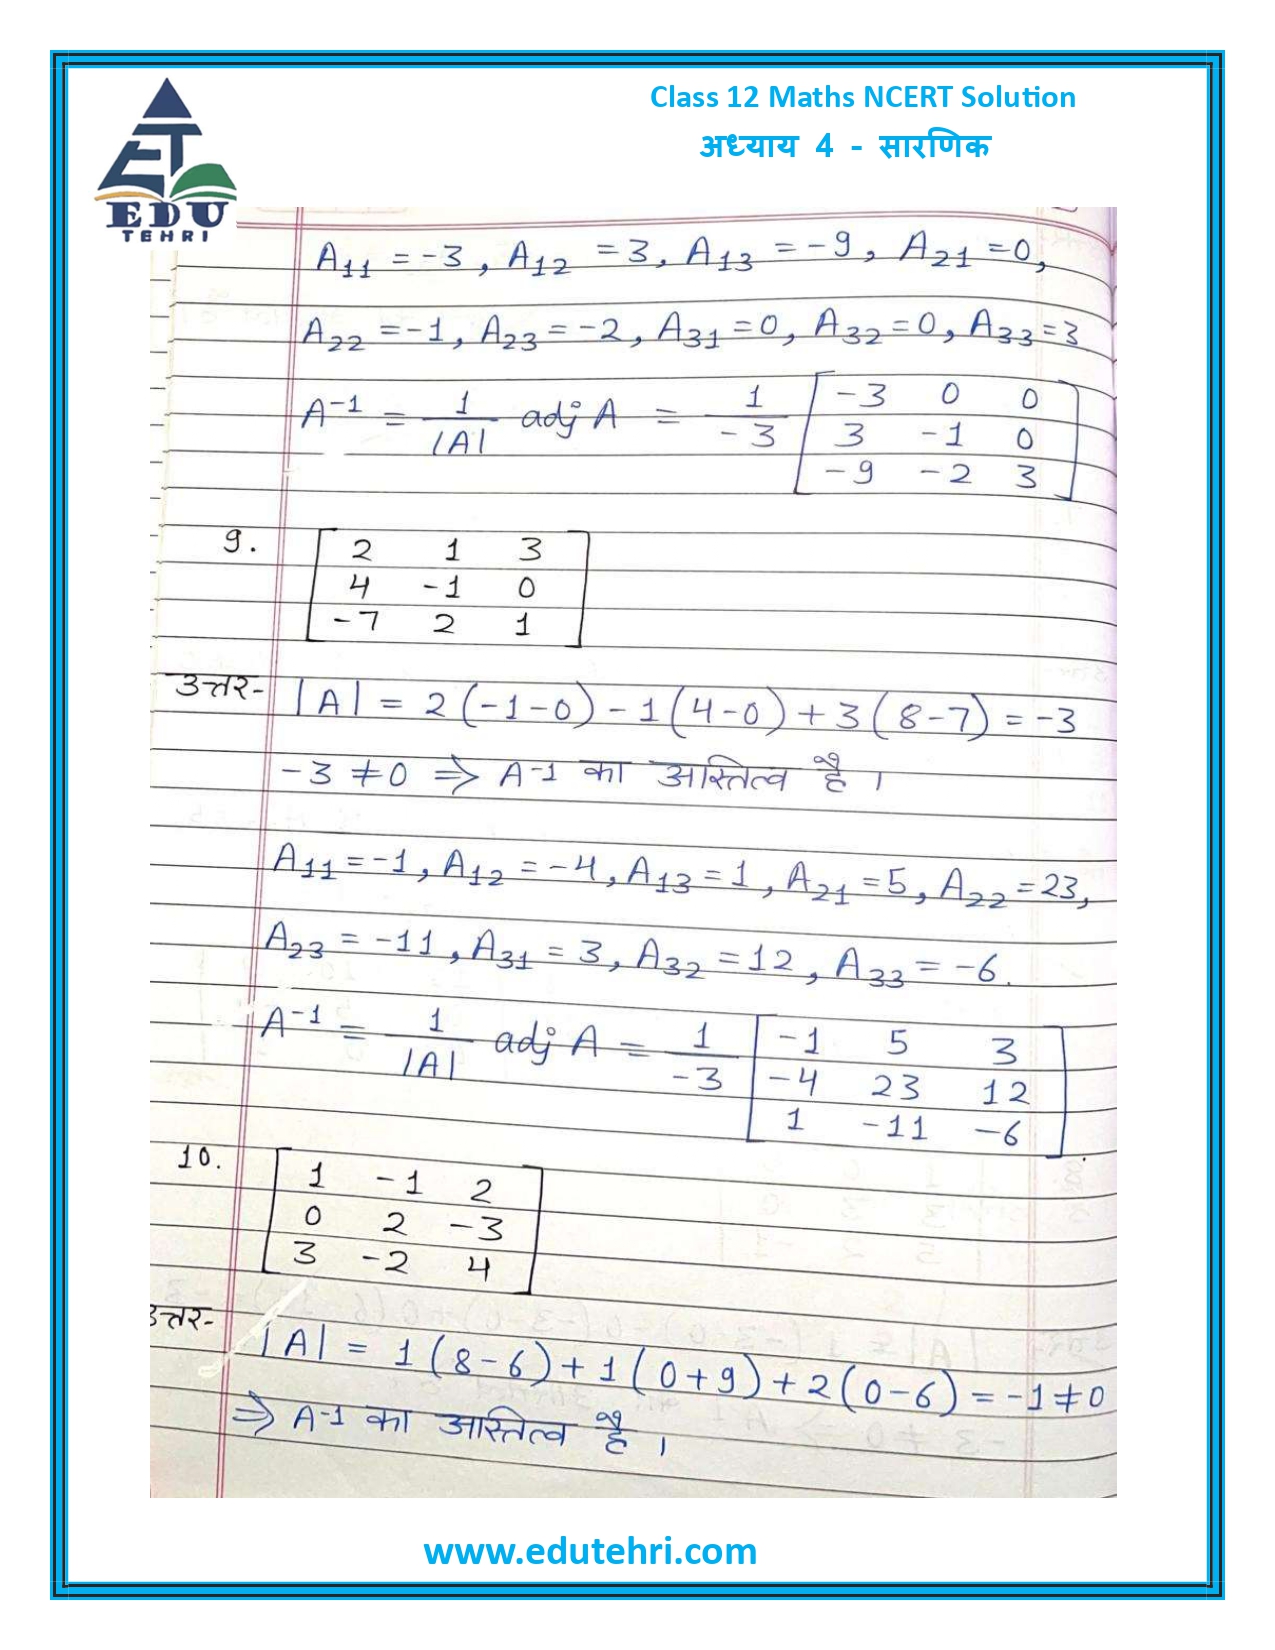 Class 12 Maths NCERT Solution
अध्याय 4 - सारणिक
EDU
TEHRI
A₁₁ = -3, A₁₂ = 3, A₁₃ = -9, A₂₁ = 0,
A₂₂ = -1, A₂₃ = -2, A₃₁ = 0, A₃₂ = 0, A₃₃ = 3
A⁻¹ = 1/|A| adj A = 1/-3 [-3 0 0
3 -1 0
-9 -2 3]
9. [2 1 3
4 -1 0
-7 2 1]
उत्तर- |A| = 2(-1-0) - 1(4-0) + 3(8-7) = -3
-3 ≠ 0 ⇒ A-1 का अस्तित्व है।
A₁₁ = -1, A₁₂ = -4, A₁₃ = 1, A₂₁ = 5, A₂₂ = 23,
A₂₃ = -11, A₃₁ = 3, A₃₂ = 12, A₃₃ = -6.
A⁻¹ = 1/|A| adj A = 1/-3 [-1 5 3
-4 23 12
1 -11 -6].
10. [1 -1 2
0 2 -3
3 -2 4]
उत्तर- |A| = 1(8-6) + 1(0+9) + 2(0-6) = -1 ≠ 0
⇒ A-1 का अस्तित्व है।
www.edutehri.com